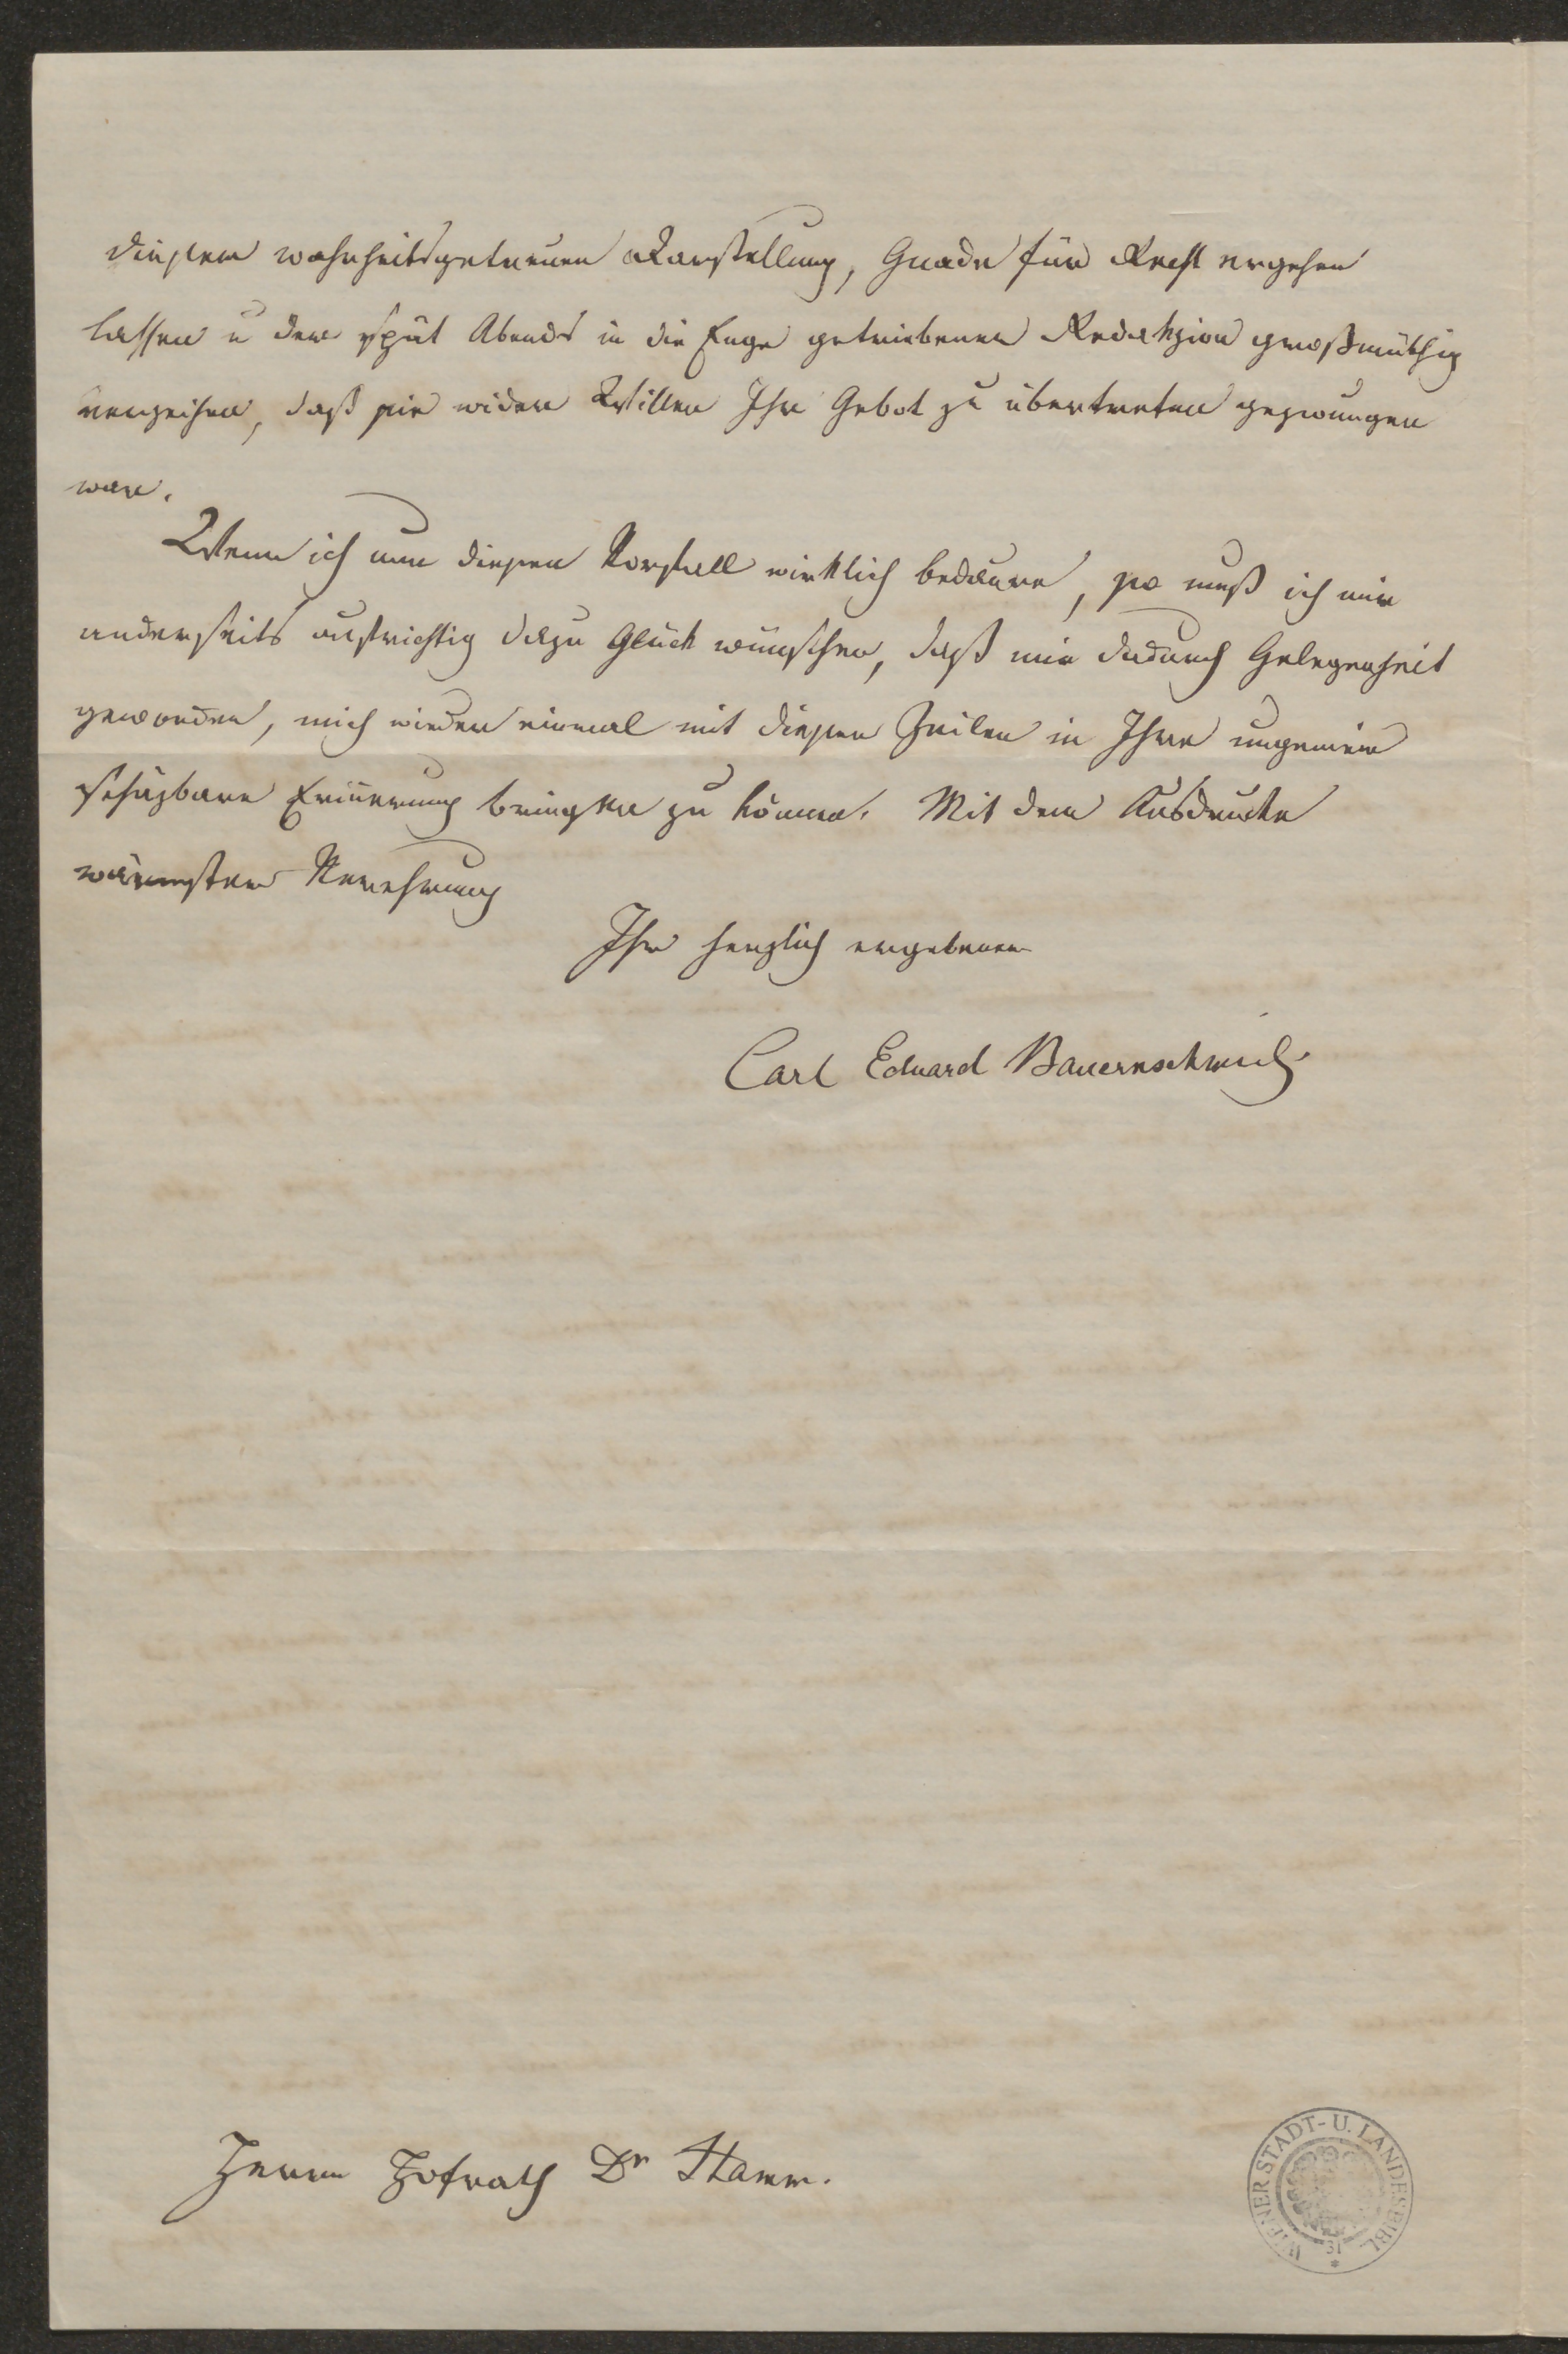 dieser wahrheitsgetreuen Darstellung, Gnade für Recht ergehen
lassen u der spät Abends in die Enge getriebenen Redakzion großmüthig
verzeihen, daß sie wider Willen Ihr Gebot zu übertreten gezwungen
war.
Wenn ich nun diesen Vorfall wirklich bedaure, so muß ich mir
anderseits aufrichtig dazu Glück wünschen, daß mir dadurch Gelegenheit
geworden, mich wieder einmal mit diesen Zeilen in Ihre ungemein
schäzbare Erinerung bringen zu können. Mit dem Ausdrucke
wärmster Verehrung
Ihr herzlich ergebener
Carl Eduard Bauernschmid
Herrn Hofrath Dr Stamm.
WIENER STADT- U. LANDESBIBL.
31